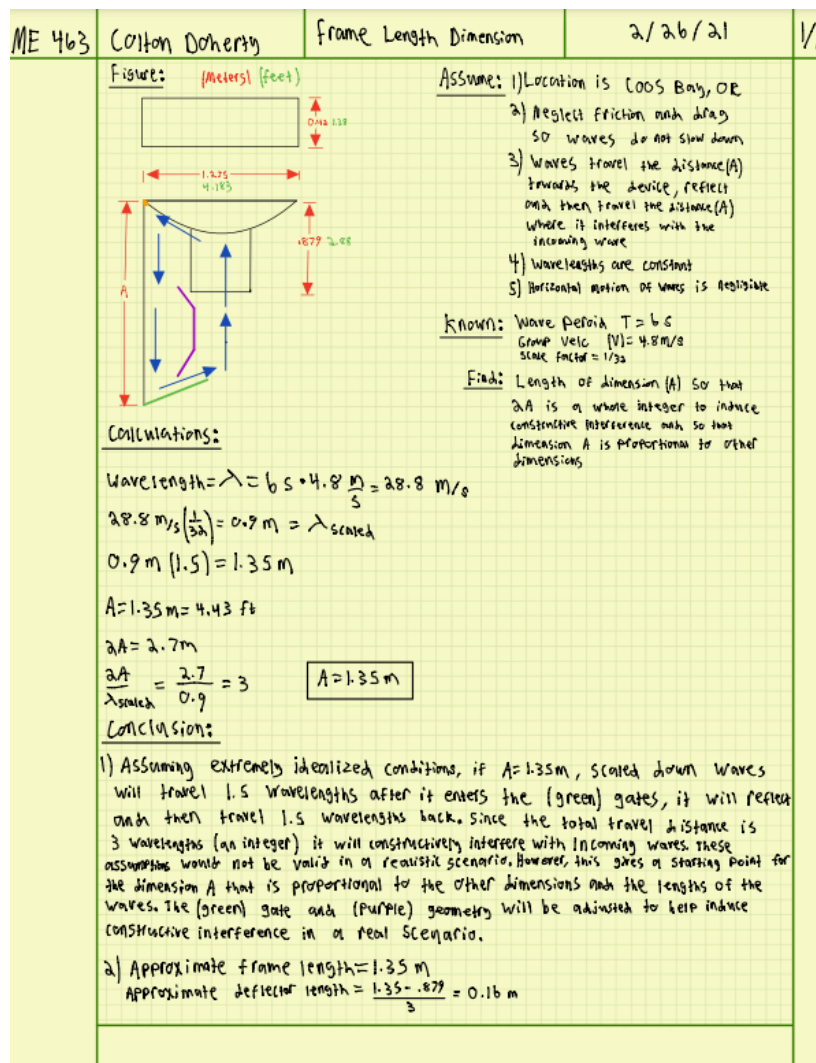 ME 463 Colton Doherty Frame Length Dimension 2/26/21 1/
Figure: (Meters) (feet)
0.42 1.38
1.275
4.183
.879 2.88
A
Assume: 1) Location is Coos Bay, OR
2) Neglect friction and drag
so waves do not slow down
3) Waves travel the distance (A)
towards the device, reflect
and then travel the distance (A)
where it interferes with the
incoming wave
4) Wavelengths are constant
5) Horizontal motion of waves is negligible
Known: Wave Peroid T = 6 s
Group Velc (V) = 4.8 m/s
Scale factor = 1/32
Find: Length of dimension (A) so that
2A is a whole integer to induce
constructive interference and so that
dimension A is proportional to other
dimensions
Calculations:
Wavelength = λ = 6 s • 4.8 m/s = 28.8 m/s
28.8 m/s (1/32) = 0.9 m = λ scaled
0.9 m (1.5) = 1.35 m
A = 1.35 m = 4.43 ft
2A = 2.7m
2A/λscaled = 2.7/0.9 = 3
A = 1.35 m
Conclusion:
1) Assuming extremely idealized conditions, if A = 1.35m, scaled down waves
will travel 1.5 wavelengths after it enters the (green) gates, it will reflect
and then travel 1.5 wavelengths back. Since the total travel distance is
3 wavelengths (an integer) it will constructively interfere with incoming waves. These
assumptions would not be valid in a realistic scenario. However, this gives a starting point for
the dimension A that is proportional to the other dimensions and the lengths of the
waves. The (green) gate and (purple) geometry will be adjusted to help induce
constructive interference in a real scenario.
2) Approximate frame length = 1.35 m
Approximate deflector length = 1.35 - .879 / 3 = 0.16 m